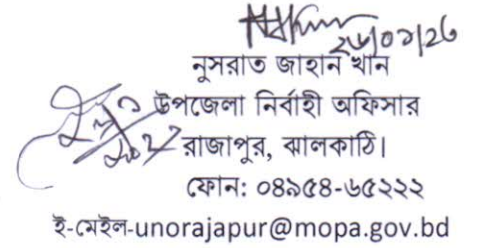 ২৬/০১/২৬
নুসরাত জাহান খান
উপজেলা নির্বাহী অফিসার
রাজাপুর, ঝালকাঠি।
ফোন: ০৪৯৫৪-৬৫২২২
ই-মেইল-unorajapur@mopa.gov.bd